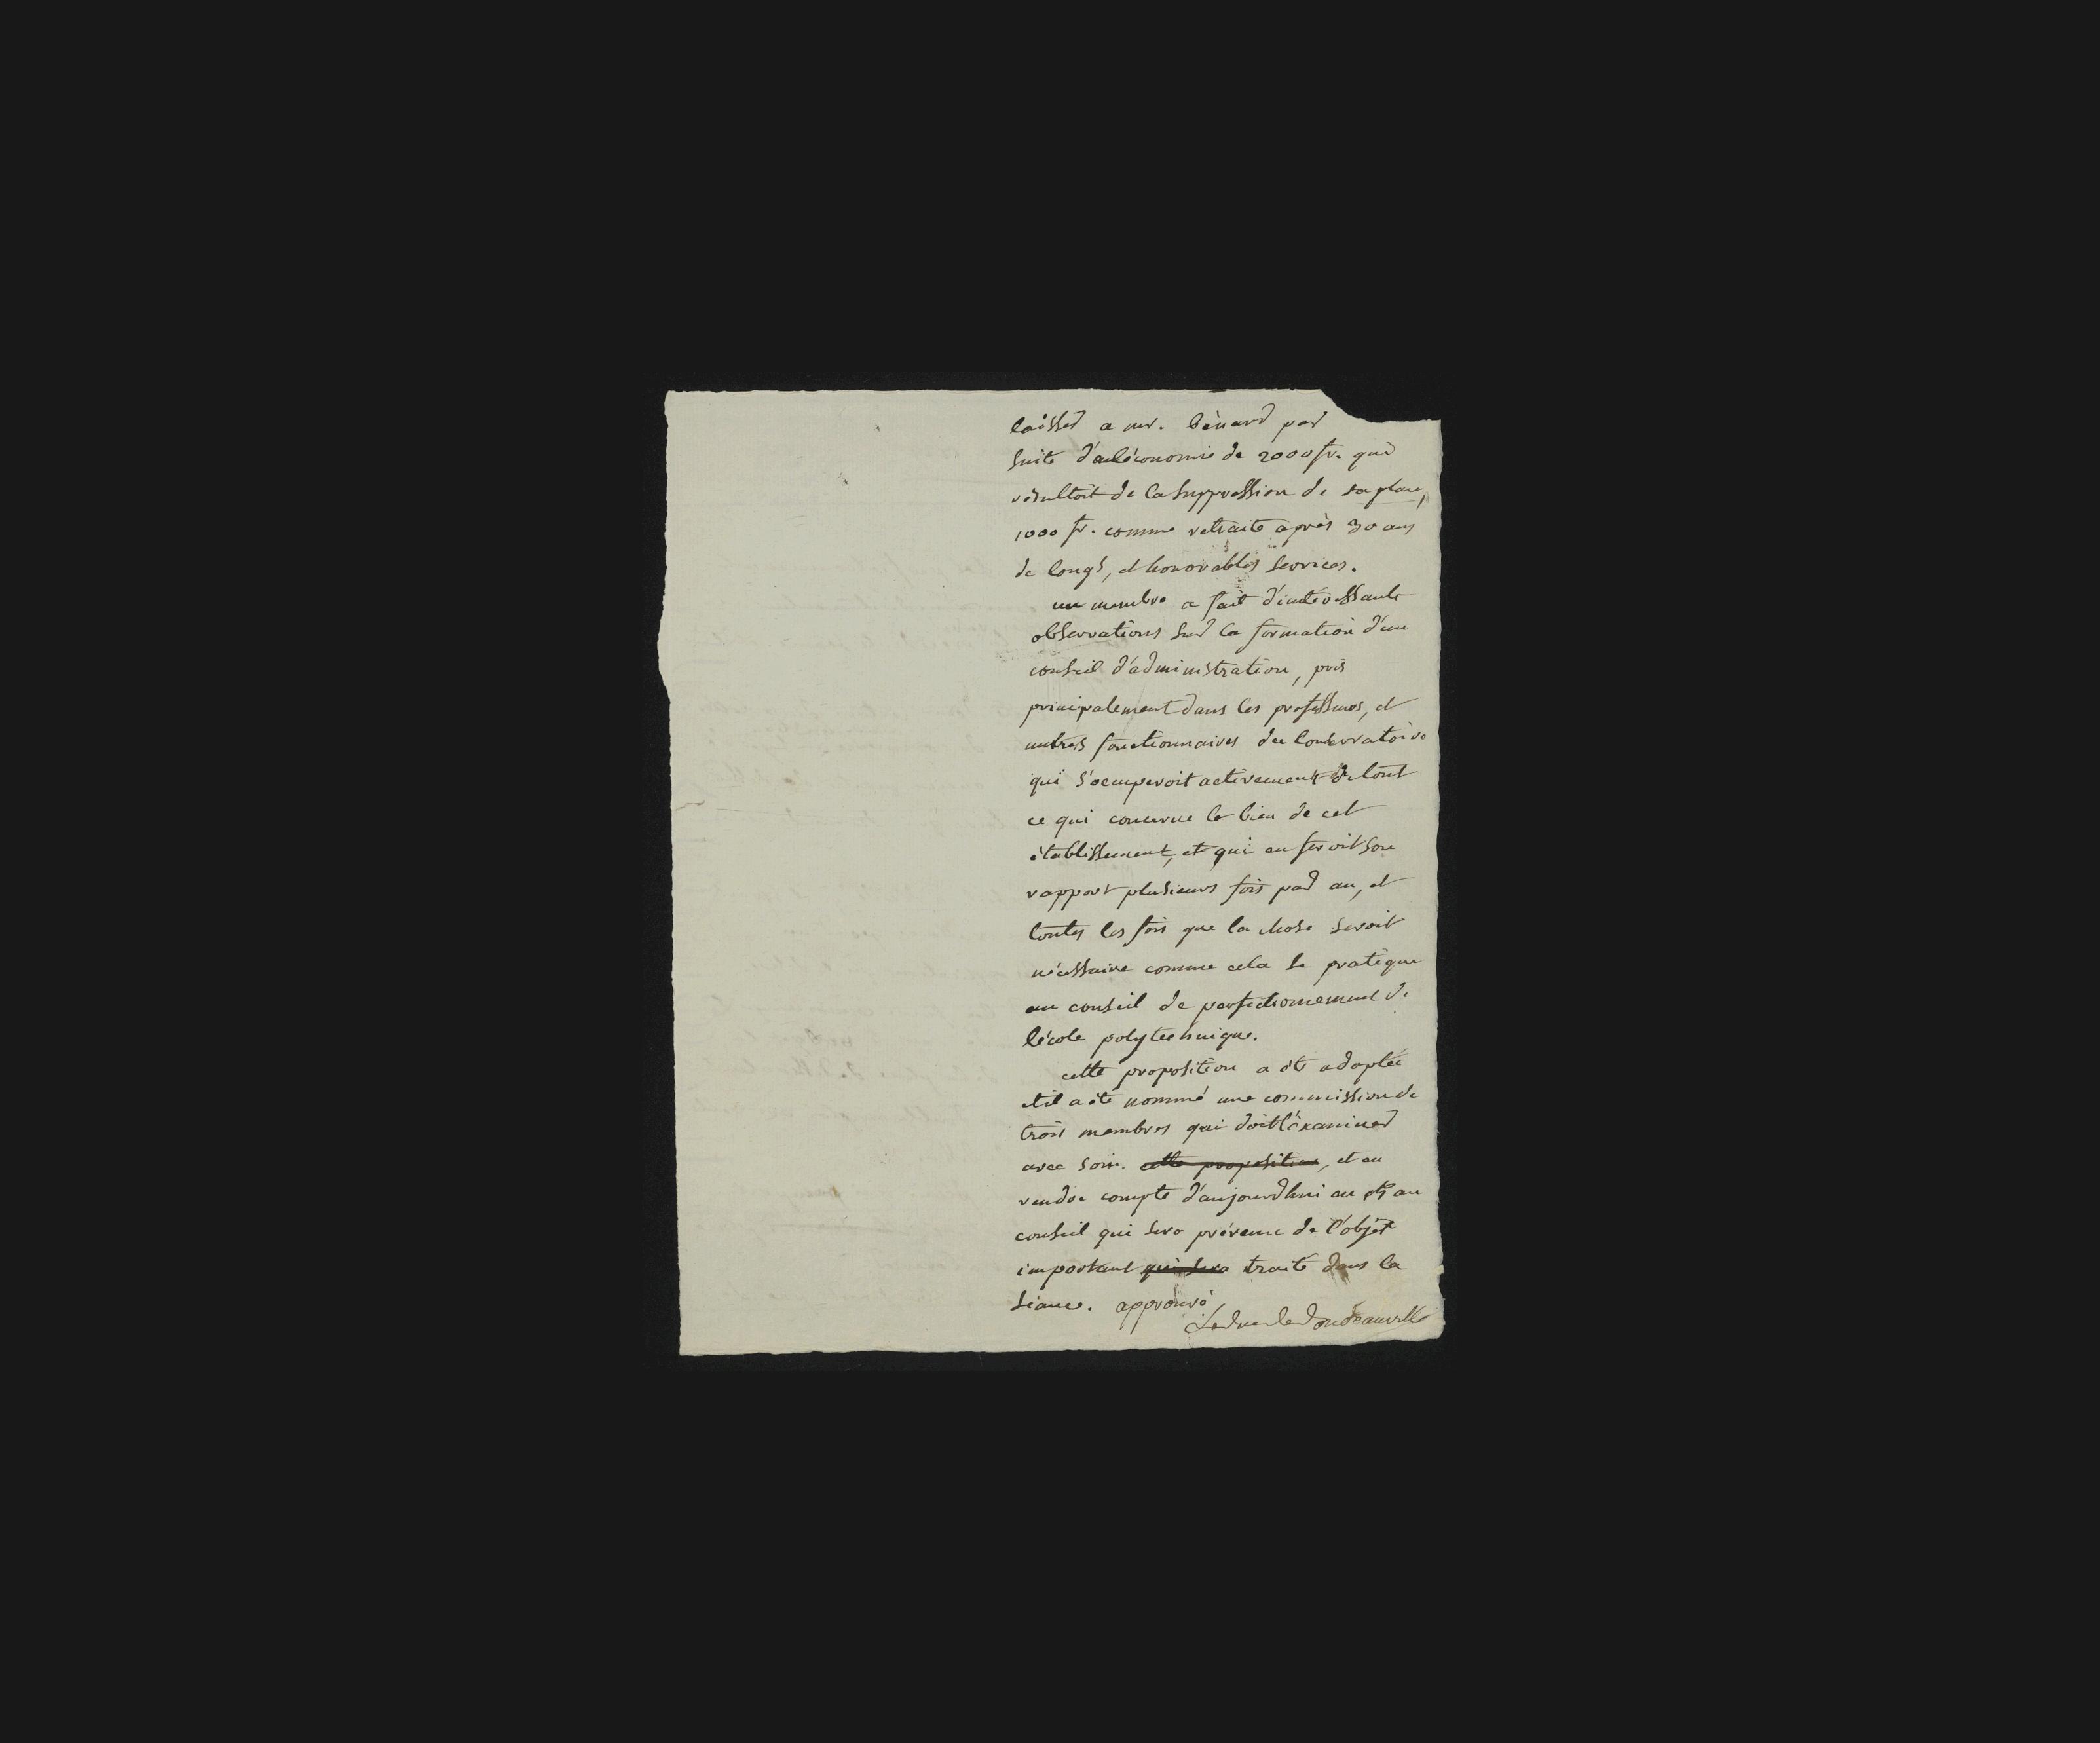 laisser a mr. bénard par
suite d'une économie de 2000 fr. qui
résultoit de la suppression de sa place,
1000 fr. comme retraite après 30 ans
de longs, et honorables services.
un membre a fait d'intéressante
observations sur la formation d'un
conseil d'administration, pris
principalement dans les professeurs, et
autres fonctionnaires du Conservatoire
qui s'occuperoit activement de tout
ce qui concerne le bien de cet
établissement, et qui en feroit son
rapport plusieurs fois par an, et
toutes les fois que la chose seroit
nécessaire comme cela se pratique
au conseil de perfectionnement de
l'école polytechnique.
cette proposition a été adoptée
et il a été nommé une commission de
trois membres qui doit l'éxaminer
avec soin. cette proposition, et en
rendre compte d'aujourdhui en au
conseil qui sera prévenu de l'objet
important qui sera traité dans la
séance. approuvé
Le duc de Doudeauville